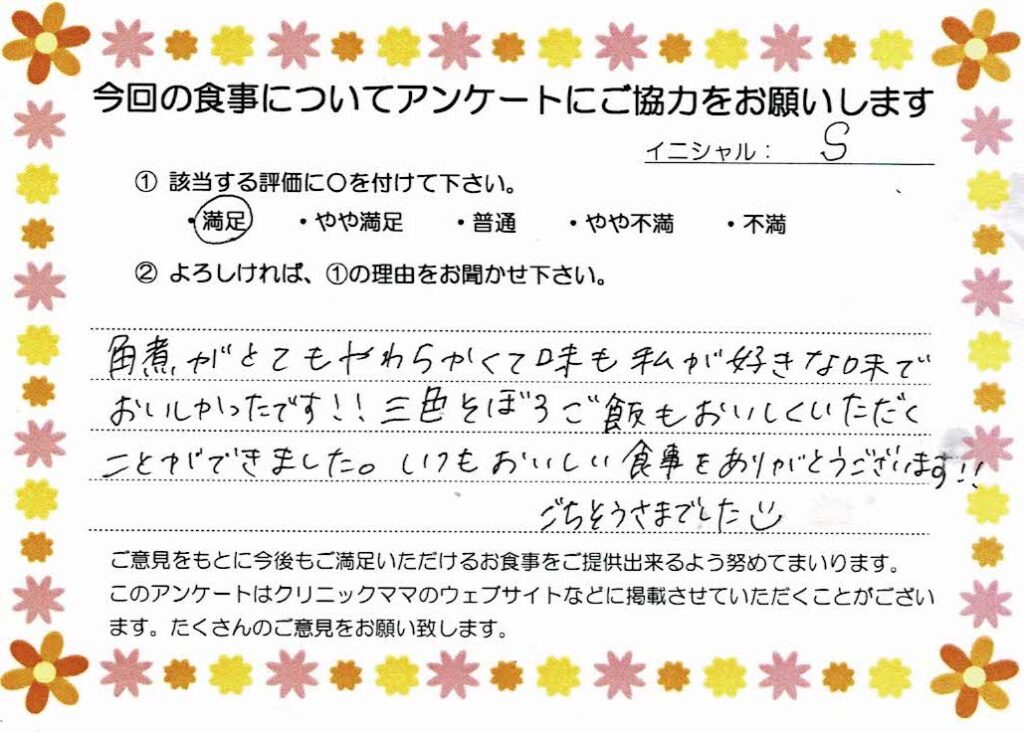 今回の食事についてアンケートにご協力をお願いします
イニシャル： S
① 該当する評価に〇を付けて下さい。
・満足 ・やや満足 ・普通 ・やや不満 ・不満
② よろしければ、①の理由をお聞かせ下さい。
角煮がとてもやわらかくて味も私が好きな味で
おいしかったです!! 三色そぼろご飯もおいしくいただく
ことができました。いつもおいしい食事をありがとうございます!!
ごちそうさまでした
ご意見をもとに今後もご満足いただけるお食事をご提供出来るよう努めてまいります。
このアンケートはクリニックママのウェブサイトなどに掲載させていただくことがござい
ます。たくさんのご意見をお願い致します。